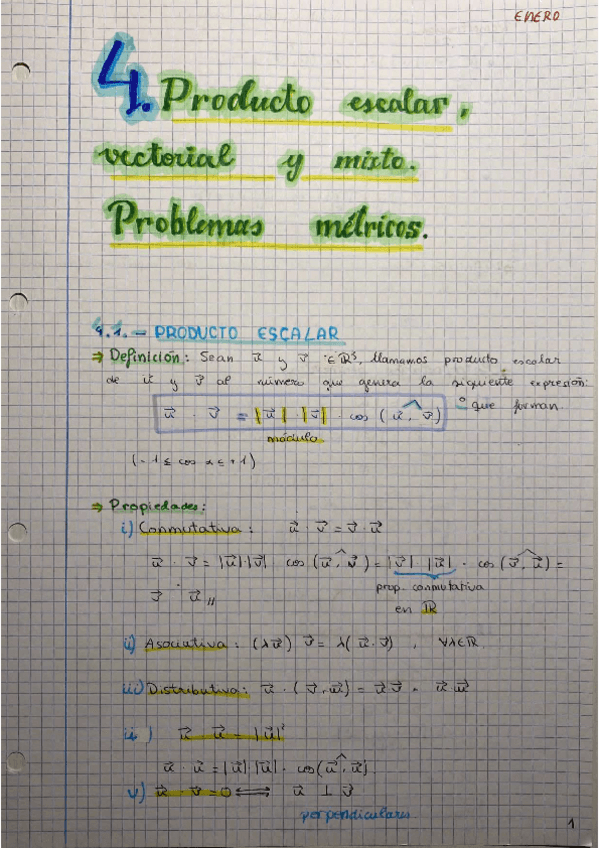 ENERO
4. Producto escalar,
vectorial y mixto.
Problemas métricos.
4.1.- PRODUCTO ESCALAR
⇒ Definición: Sean u⃗ y v⃗ ∈ℝ³, llamamos producto escalar
de u⃗ y v⃗ al número que genera la siguiente expresión:
u⃗ · v⃗ = |u⃗| · |v⃗| · cos (u⃗, v⃗) que forman.
módulo
(-1 ≤ cos α ≤ +1)
⇒ Propiedades:
i) Conmutativa: u⃗ · v⃗ = v⃗ · u⃗
u⃗ · v⃗ = |u⃗|·|v⃗| cos (u⃗, v⃗) = |v⃗| · |u⃗| · cos (v⃗, u⃗) =
prop. conmutativa
v⃗ · u⃗ //
en ℝ
ii) Asociativa: (λu⃗) v⃗ = λ(u⃗·v⃗) , ∀λ∈ℝ
iii) Distributiva: u⃗ · (v⃗, w⃗) = u⃗ v⃗ + u⃗·w⃗
u⃗ · u⃗ = |u⃗|²
u⃗ · u⃗ = |u⃗| |u⃗| · cos(u⃗, u⃗)
v) u⃗ · v⃗ = 0 ⟺ u⃗ ⊥ v⃗
perpendiculares
1